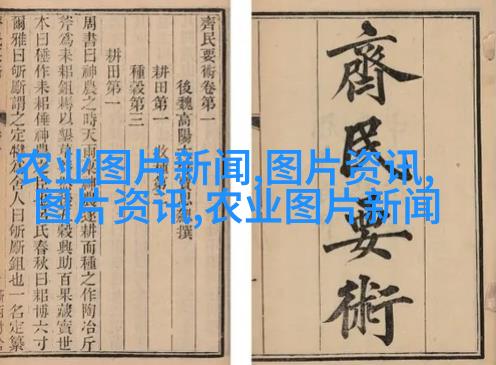 齊民要術
齊民要術卷第一
後魏高陽思勰撰
耕田第一
種穀第三
耕田第一
周書曰神農之時天雨遂耕而種之作陶冶斤
斧為耒耜鉏耨以墾草穀興助百果藏實世
本曰倕作耒耜倕神農氏春秋曰耜博六寸
爾雅曰斪斸謂之定舍人曰斪斸鉏也一名定纂
农业图片新闻,图片资讯,
图片资讯,农业图片新闻